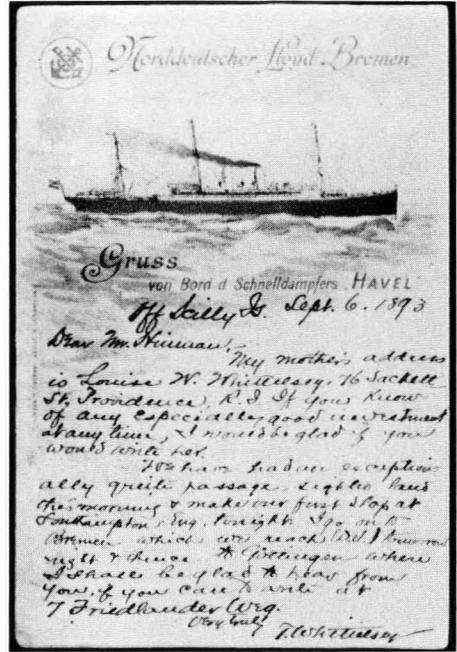 Norddeutscher Lloyd Bremen
Gruss
von Bord d Schnelldampfers HAVEL
Off Scilly Is. Sept. 6. 1893
Dear Mr. Hinman:
My mother's address
is Louise W. Whittelsey, 76 Sackett
St. Providence, R.I. If you know
of any especially good investment
at any time, I would be glad if you
would write her.
We have had an exception-
ally quiet passage, sighted land
this morning & make our first stop at
Southampton, Eng. tonight. I go on to
Bremen which we reach
& thence to Göttingen where
I shall be glad to hear from
you if you care to write at
7 Friedlander Weg.
Very truly
T. Whittelsey